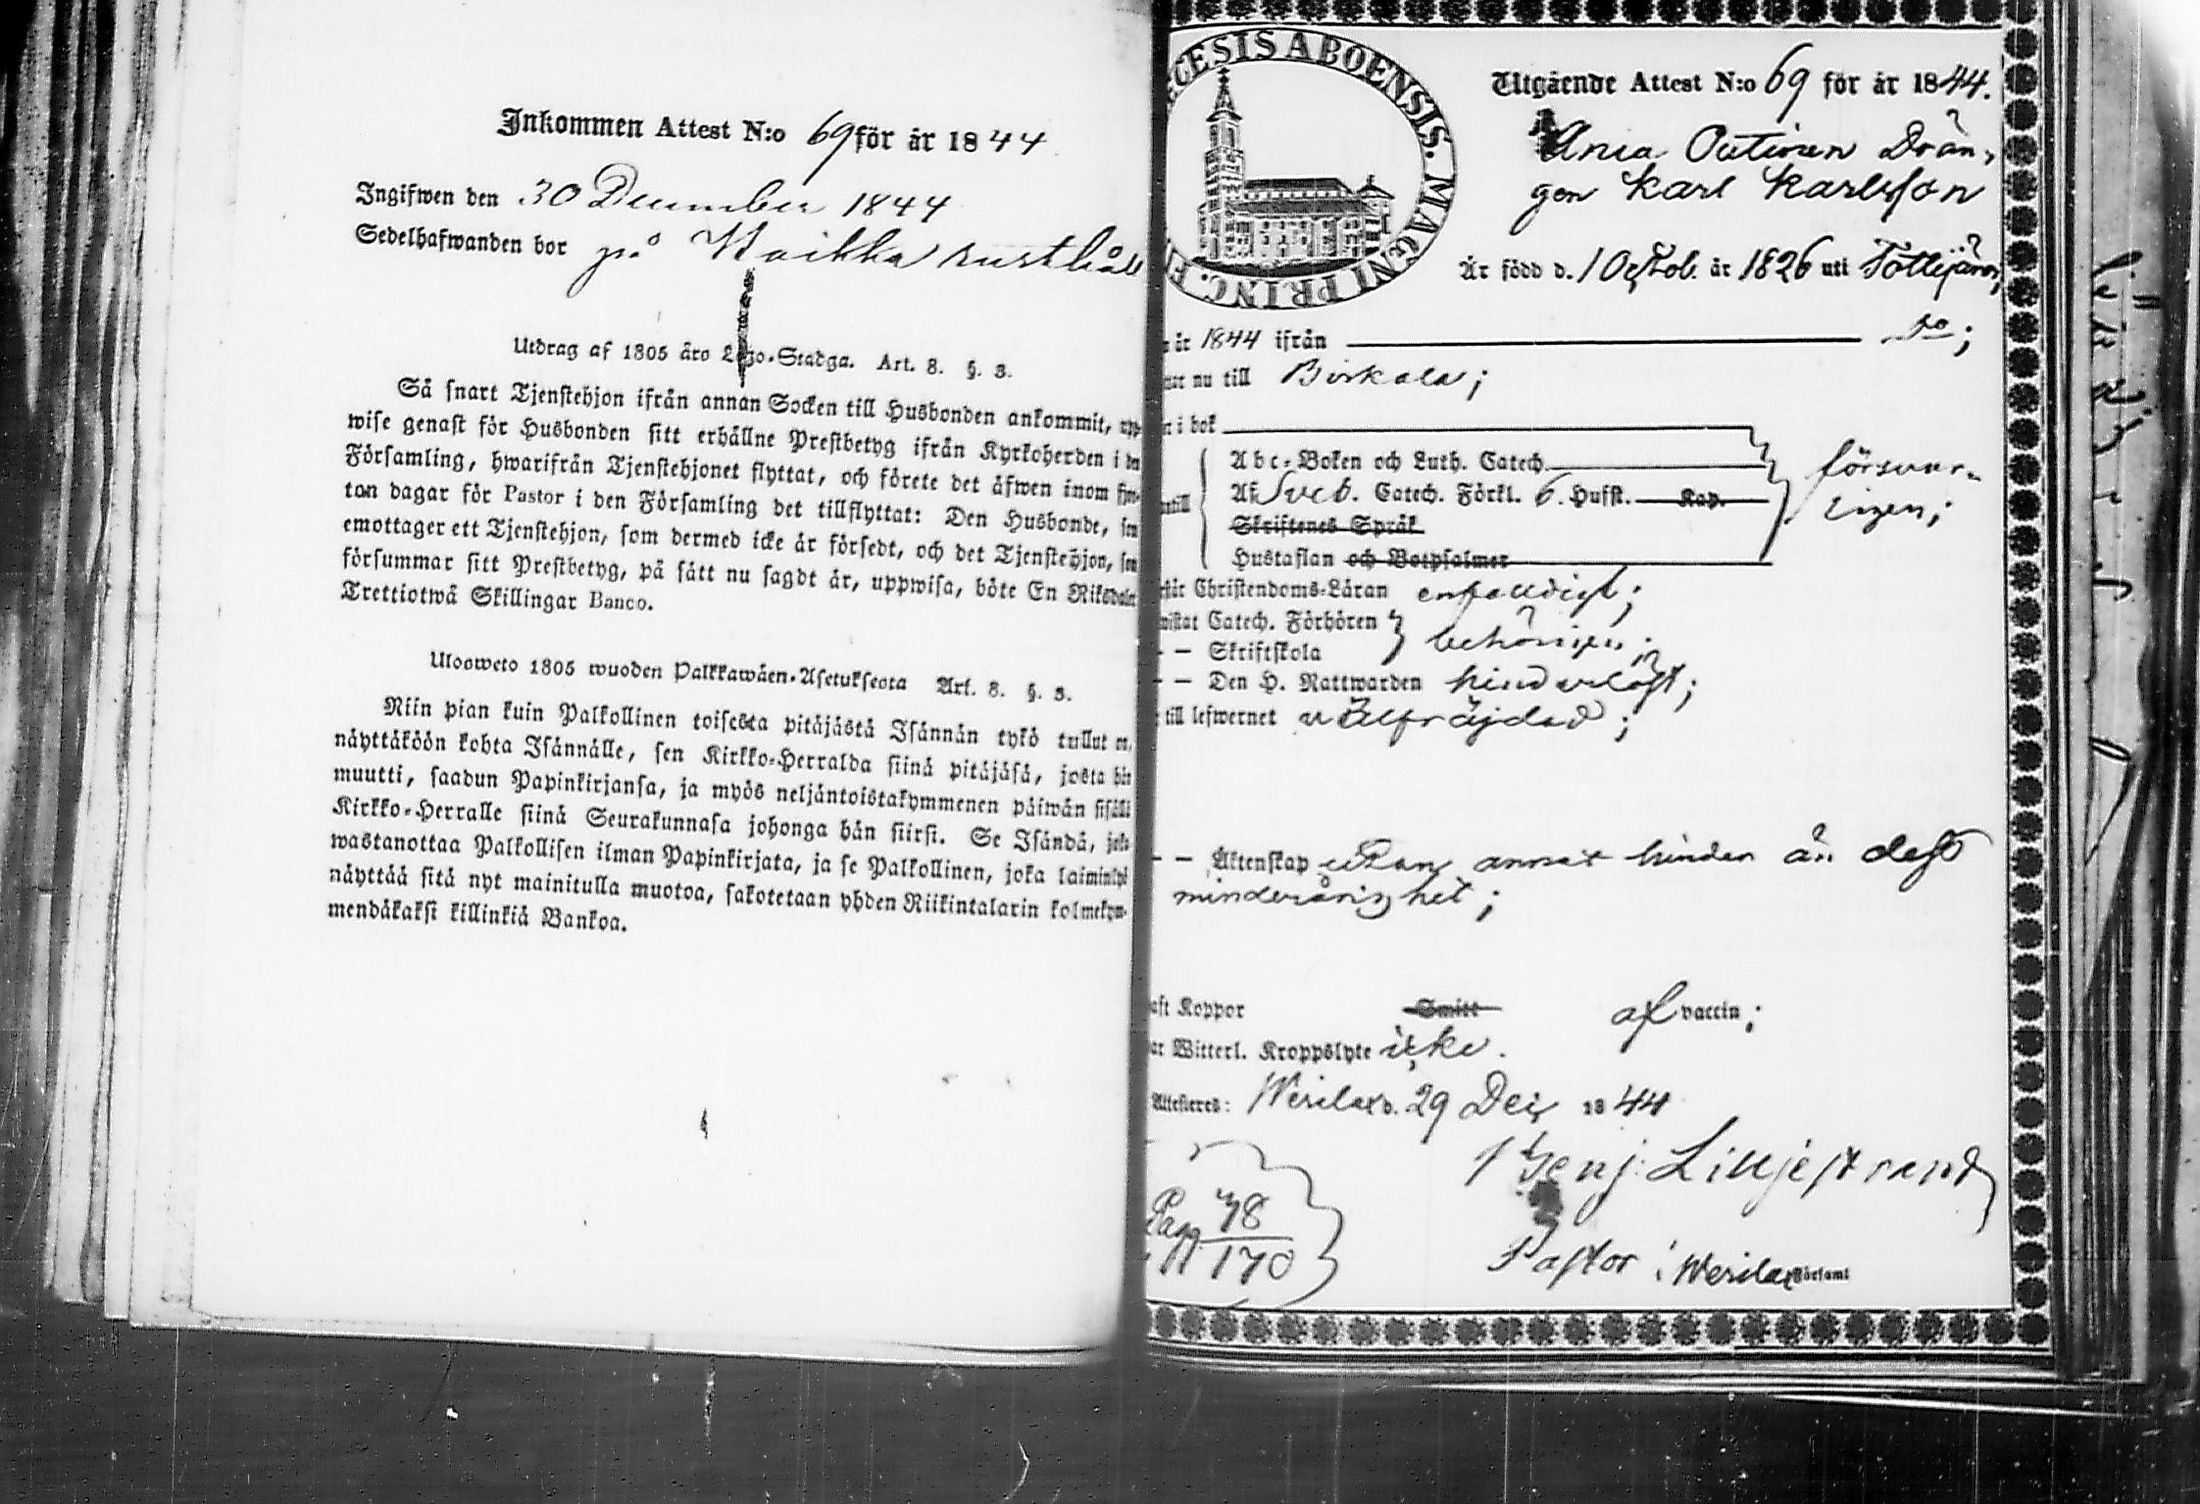 Inkommen Attest N:o 69 för år 1844
Ingifwen den 30 December 1844
Sedelhafwanden bor på rusthåll
Utdrag af 1805 års Lego-Stadga. Art. 8. §. 3.
Så snart Tjenstehjon ifrån annan Socken till Husbonden ankommit, upp-
wise genast för Husbonden sitt erhållne Prestbetyg ifrån Kyrkoherden i den
Församling, hwarifrån Tjenstehjonet flyttat, och förete det äfwen inom fjor-
ton dagar för Pastor i den Församling det tillflyttat: Den Husbonde, som
emottager ett Tjenstehjon, som dermed icke är försedt, och det Tjenstehjon, som
försummar sitt Prestbetyg, på sätt nu sagdt är, uppwisa, böte En Riksdaler
Trettiotwå Skillingar Banco.
Ulosweto 1805 wuoden Palkkawäen-Asetuksesta Art. 8. §. 3.
Niin pian kuin Palkollinen toisesta pitäjästä Isännän tykö tullut on,
näyttäköön kohta Isännälle, sen Kirkko-Herralda siinä pitäjäsä, josta hän
muutti, saadun Papinkirjansa, ja myös neljäntoistakymmenen päiwän sisällä
Kirkko-Herralle siinä Seurakunnasa johonga hän siirsi. Se Isändä, joka
wastanottaa Palkollisen ilman Papinkirjata, ja se Palkollinen, joka laiminlyö
näyttää sitä nyt mainitulla muotoa, sakotetaan yhden Riikintalarin kolmekym-
mendäkaksi killinkiä Bankoa.
CESIS ABOENSIS. MAGNI PRINC. F
Utgående Attest N:o 69 för år 1844.
Drän-
gen Karl Karlsson
Är född d. 1 Octob. år 1826 uti Tottijärvi,
år 1844 ifrån do;
nu till Birkala;
i bok
Abc-Boken och Luth. Catech.
försvar-
Af Sveb. Catech. Förkl. 6. Hufst. Kap.
ligen;
Skriftenes Språk
Hustaflan och Botpsalmer
Christendoms-Läran enfaldigt;
Catech. Förhören
behörigen;
- - Skriftskola
- - Den H. Nattwarden hinderlöst;
till lefwernet wälfräjdad;
- - Äktenskap utan annat hinder än dess
minderårighet;
Koppor Smitt af vaccin;
Witterl. Kroppslyte icke.
Attesteras: Wesilax d. 29 Dec. 1844
Benj. Lilljestrand
Pag. 78
170
Pastor i Wesilax Församl